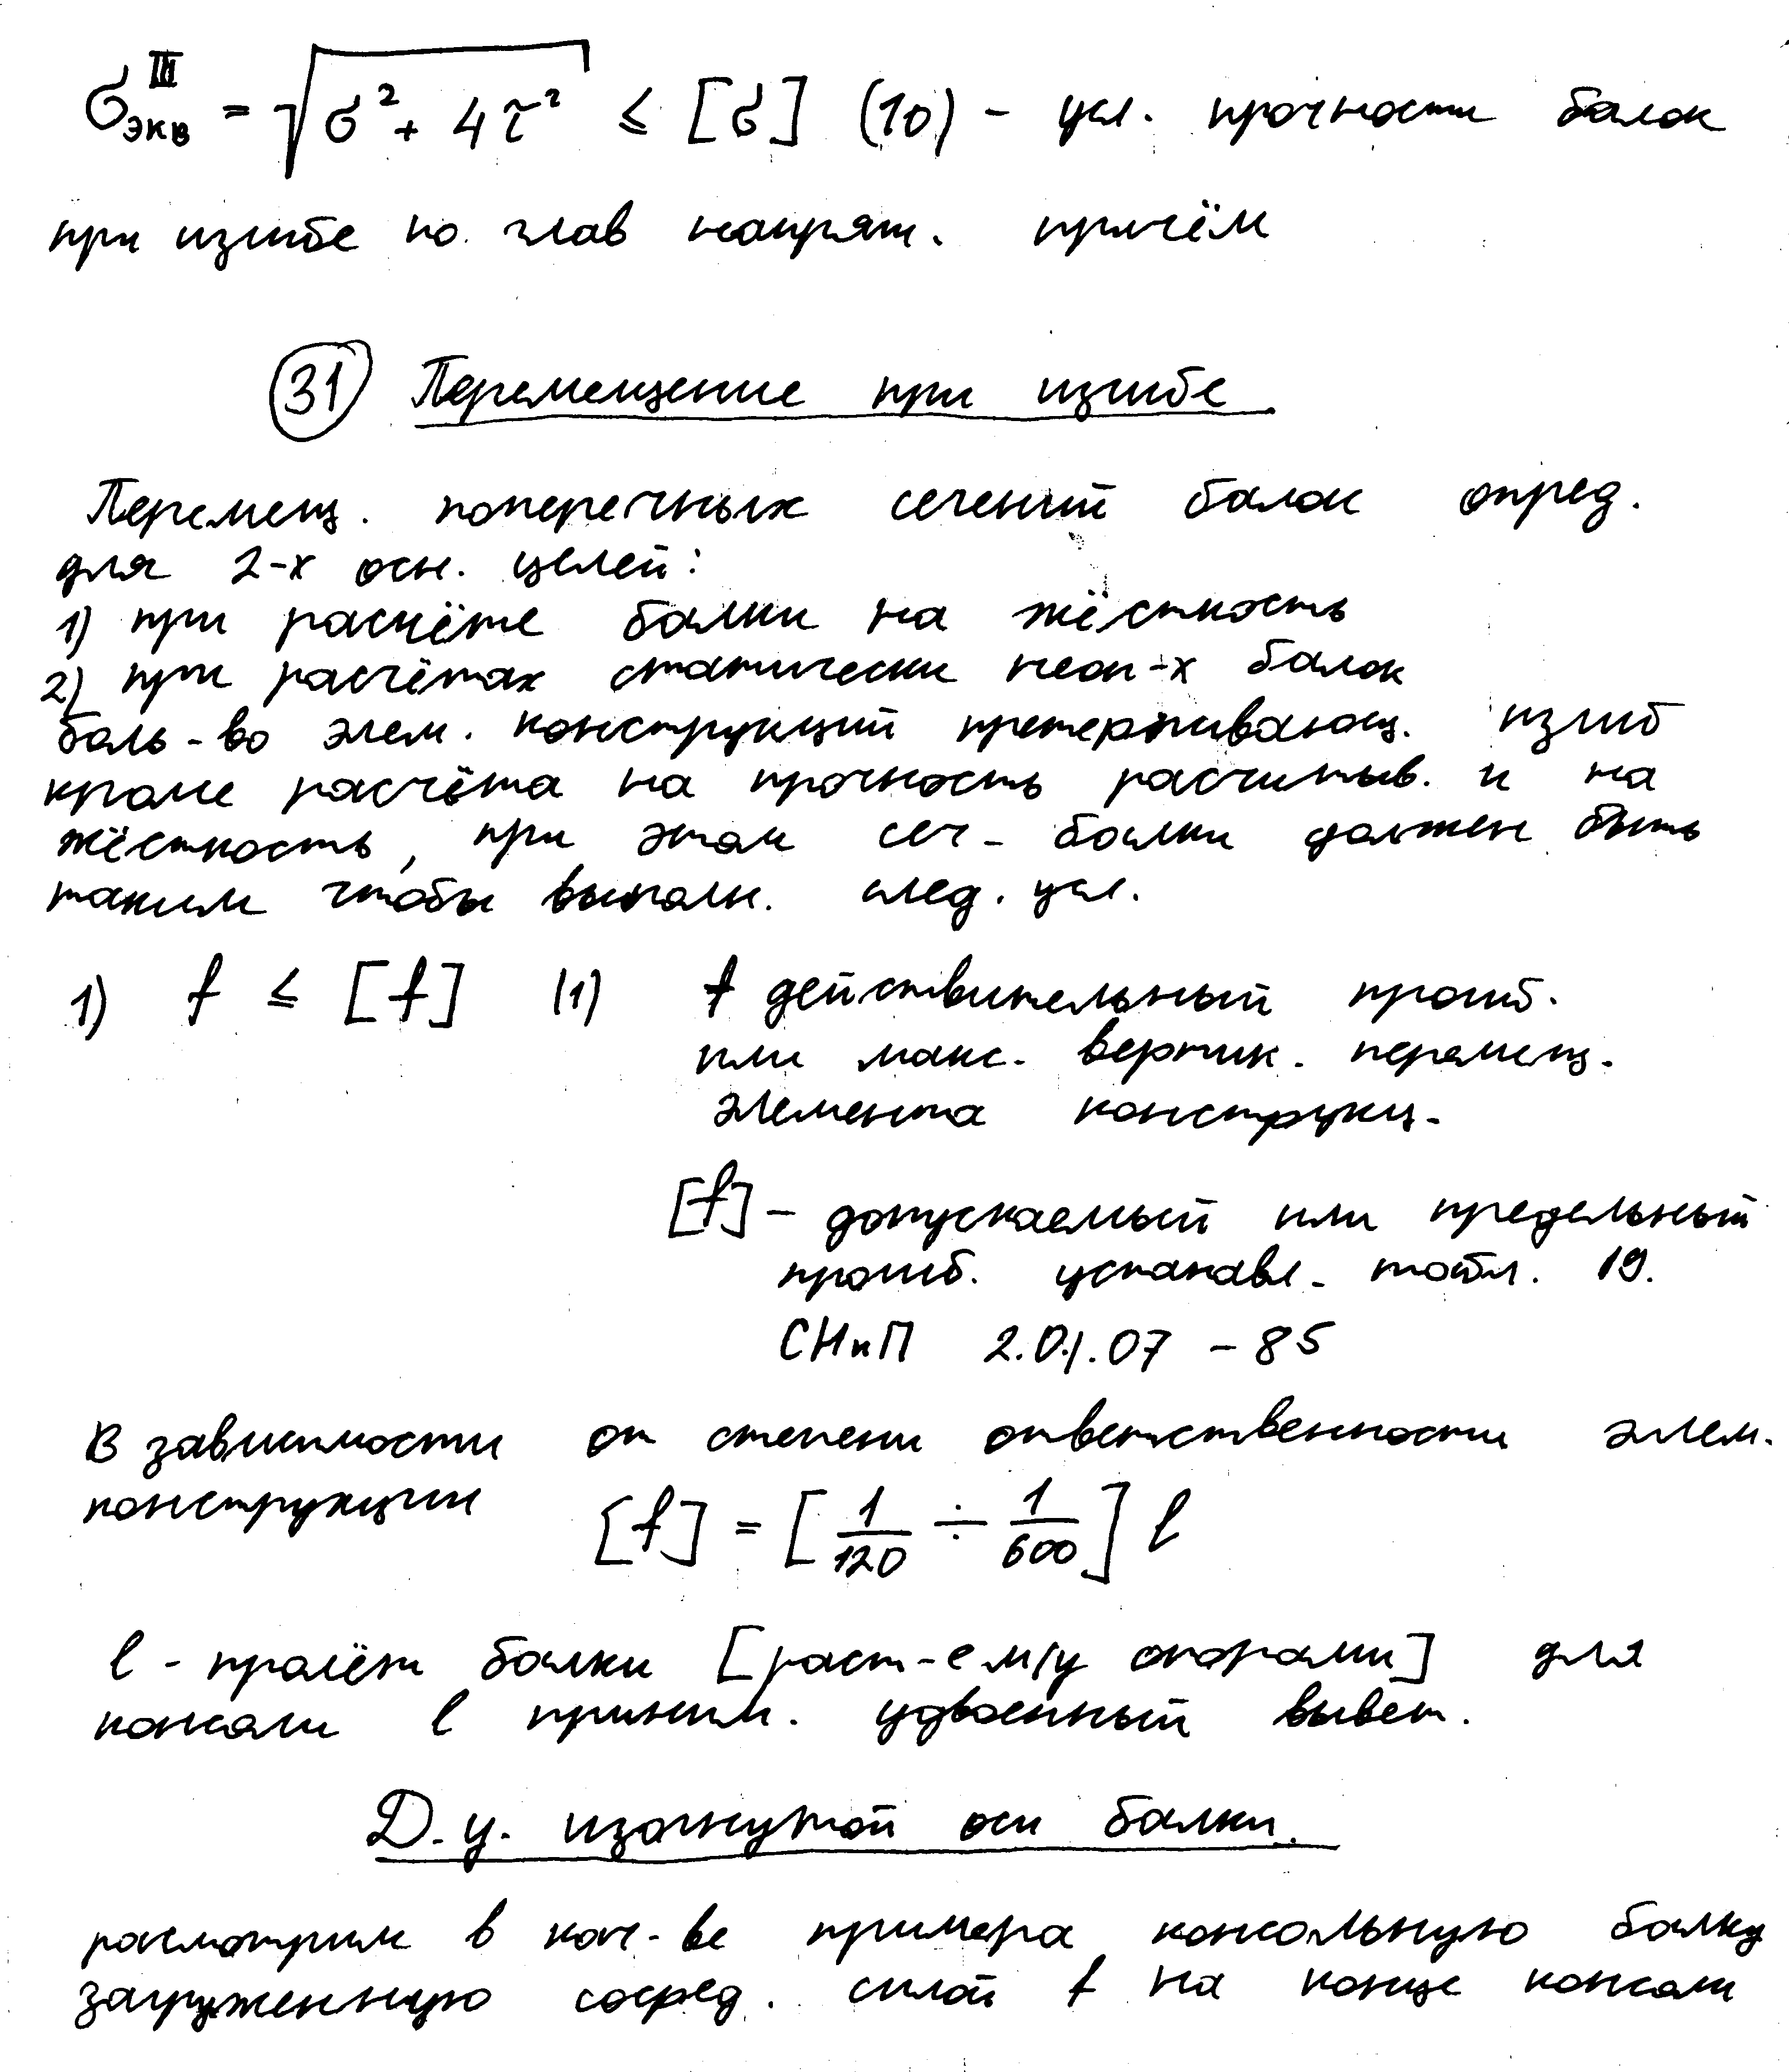 σ^III_экв = √(σ² + 4τ²) ≤ [σ] (10) – усл. прочности балок
при изгибе по. глав напряж. причём
(31) Перемещение при изгибе.
Перемещ. поперечных сечений балок опред.
для 2-х осн. целей:
1) при расчёте балки на жёсткость
2) при расчётах статически неоп-х балок
боль-во элем. конструкций претерпивающ. изгиб
кроме расчёта на прочность расчитыв. и на
жёсткость, при этом сеч- балки должен быть
таким чтобы выполн. след. усл.
1) f ≤ [f] (1) f действительный прогиб.
или макс. вертик. перемещ.
элемента конструкц-
[f] – допускаемый или предельный
прогиб. устанавл- табл. 19.
СНиП 2.01.07 – 85
В зависимости от степени ответственности элем.
конструкции [f] = [1/120 ÷ 1/600] l
l - пролёт балки [раст-е м/у опорами] для
консоли l приним. удвоенный вылет.
Д.у. изогнутой оси балки.
расмотрим в кач-ве примера консольную балку
загруженную сосред. силой f на конце консоли